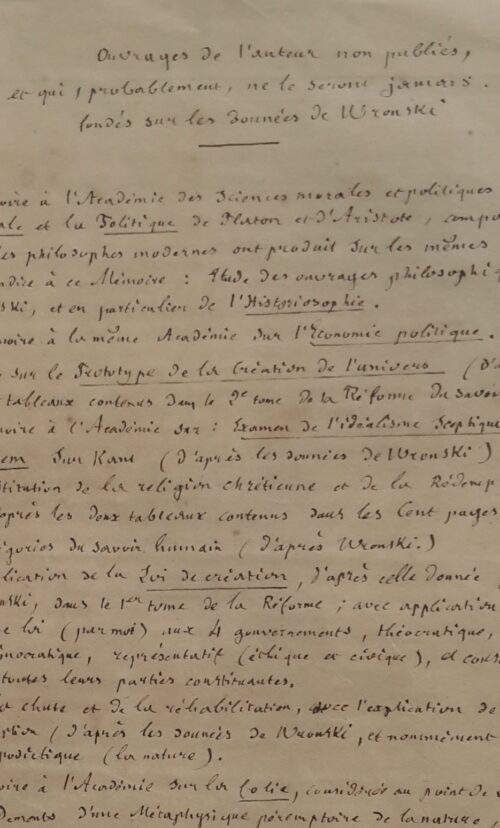 Ouvrages de l'auteur non publiés,
et qui, probablement, ne le seront jamais.
fondés sur les données de Wronski
oire à l'Académie des Sciences morales et politiques
ale et la Politique de Platon et d'Aristote, compo
les philosophes modernes ont produit sur les mêmes
ndice à ce Mémoire : Etude des ouvrages philosophiq
ski, et en particulier de l'Historiosophie.
moire à la même Académie sur l'Economie politique.
sur le Prototype de la Création de l'univers (D'a
tableaux contenus dans le 2e tome de la Réforme du Savoir
moire à l'Académie sur : Examen de l'idéalisme Sceptique
sur Kant (d'après les données de Wronski)
titution de la religion chrétienne et de la Rédemp
après les deux tableaux contenus dans les Cent pages
égories du savoir humain (d'après Wronski.)
plication de la Loi de création, d'après celle donnée
nski, dans le 1er tome de la Réforme ; avec application
e loi (par moi) aux 4 gouvernements, théocratique,
représentatif (éthique et civique), et
toutes leurs parties constituantes.
la chute et de la réhabilitation, avec l'explication de
(d'après les données de Wronski, et nommément
podictique (la nature).
oire à l'Académie sur la folie, considérée au point de v
dements d'une Métaphysique péremptoire de la nature,